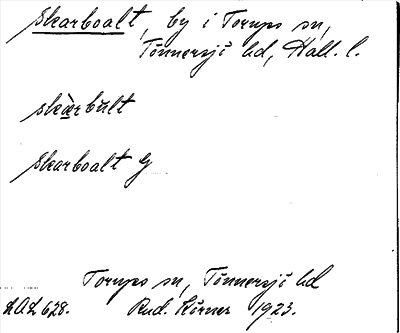 Skarboalt, by i Torups sn,
Tönnersjö hd, Hall. l.
skàrbult
Skarboalt G
Torups sn, Tönnersjö hd
LAL 628. Rud. Körner 1923.